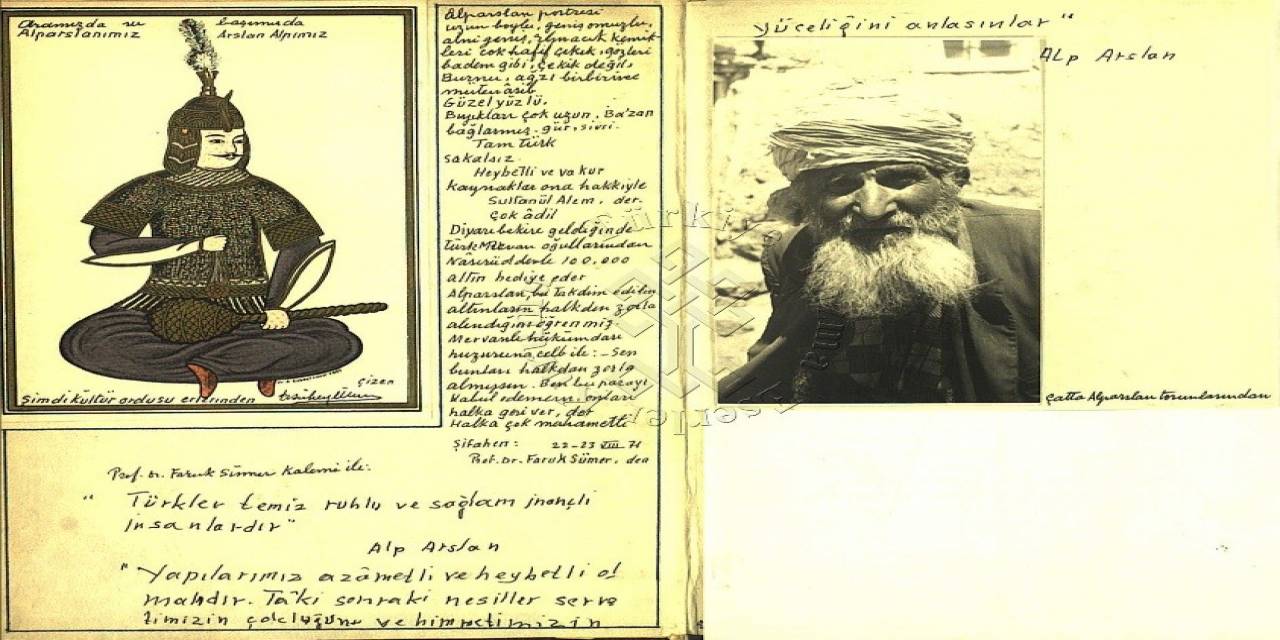 Aramızda ve başımızda
Alparslanımız Arslan Alpımız
Çizen
Şimdi Kültür ordusu erlerinden
Alparslan portresi
uzun boylu, geniş omuzlu,
alnı geniş, elmacık kemik-
leri çok hafif çıkık, gözleri
badem gibi, çekik değil,
Burnu, ağzı birbirine
mütenâsib
Güzel yüzlü.
Bıyıkları çok uzun. Ba'zan
bağlarmış. gür, sivri.
Tam türk
sakalsız.
Heybetli ve vakur
Kaynaklar ona hakkiyle
Sultanül Alem. der.
Çok âdil
Diyarıbekire geldiğinde
türk Mervan oğullarından
Nâsırüddevle 100.000
altın hediye eder
Alparslan, bu takdim edilen
altınların halkdan zorla
alındığını öğrenmiş.
Mervanlı hükümdarı
huzuruna celb ile: - Sen
bunları halkdan zorla
almışsın. Ben bu parayı
Kabul edemem. onları
halka geri ver, der
Halka çok merhametli
Şifahen: 22-23 VIII 71
Prof. Dr. Faruk Sümer. den
Prof. Dr. Faruk Sümer Kalemi ile:
" Türkler temiz ruhlu ve sağlam inançli
insanlardır"
Alp Arslan
"Yapılarımız azâmetli ve heybetli ol
malıdır. Tâ'ki sonraki nesiller serve
timizin çokluğunu ve himmetimizin
yüceliğini anlasınlar"
Alp Arslan
Çatta Alparslan torunlarından
Türkiye
Yazma
Eserler